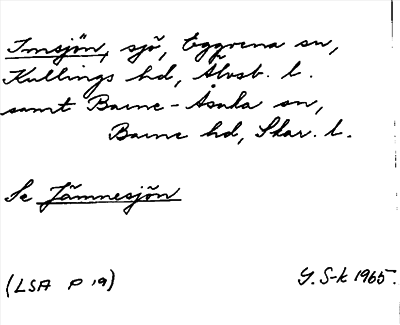 Imsjön, sjö, Eggvena sn,
Kullings hd, Älvsb. l.
samt Barne-Åsaka sn,
Barne hd, Skar. l.
Se Jämnesjön
(LSA P 19)
Y. S-k 1965.